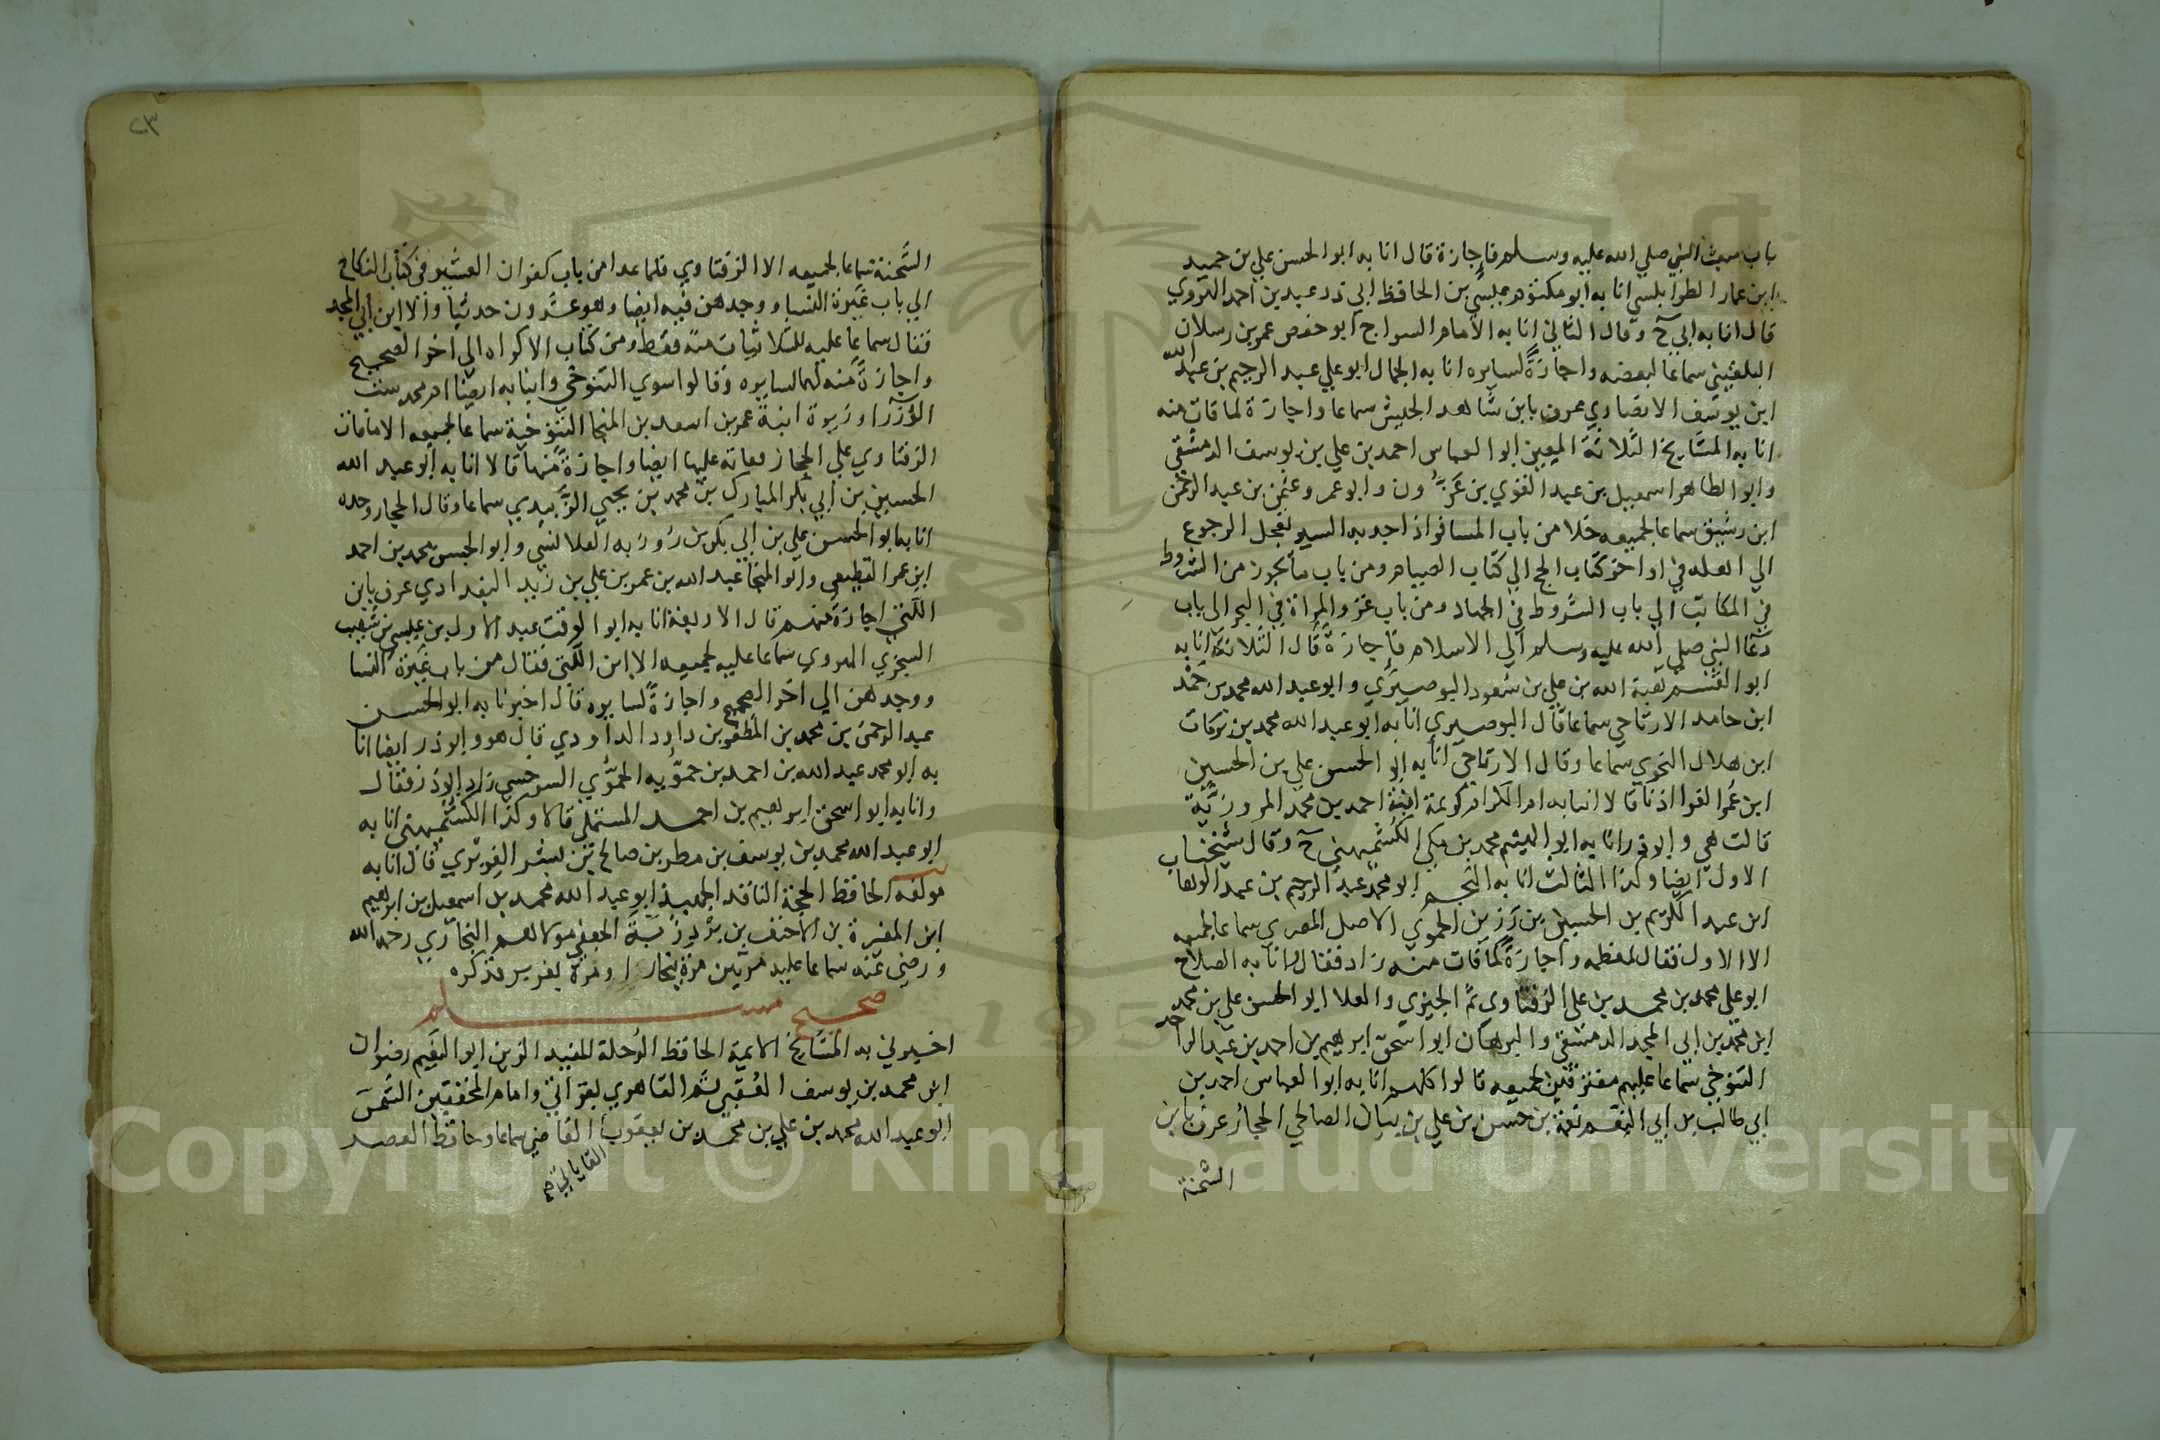 باب مبعث النبي صلي الله عليه وسلم فاجازة قال انا به ابو الحسن علي بن حميد
ابن عمار الطرابلسي انا به ابو مكتوم عيسي بن الحافظ ابي ذر عبد بن احمد الهروي
قال انا به ابي ح وقال الثاني انا به الامام السراج ابو حفص عمر بن رسلان
البلقيني سماعا لبعضه واجازة لسايره انا به الجمال ابو علي عبد الرحيم بن عبد الله
ابن يوسف الانصاري عرف بابن شاهد الجيش سماعا واجازة لما فات منه
انا به المشايخ الثلاثة المعين ابو العباس احمد بن علي بن يوسف الدمشقي
وابو الطاهر اسمعيل بن عبد القوي بن عزون وابو عمرو عثمن بن عبد الرحمن
ابن رشيق سماعا لجميعه خلا من باب المسافر اذا جد به السير تعجل الرجوع
الي اهله في اواخر كتاب الحج الي كتاب الصيام ومن باب ما يجوز من الشروط
في المكاتب الي باب الشروط في الجهاد ومن باب غزو المراة في البحر الي باب
دعا النبي صلي الله عليه وسلم الي الاسلام فاجازة قال الثلاثة انا به
ابو القسم هبة الله بن علي بن سعود البوصيري وابو عبد الله محمد بن حمد
ابن حامد الارتاحي سماعا قال البوصيري انا به ابو عبد الله محمد بن بركات
ابن هلال النحوي سماعا وقال الارتاحي انا به ابو الحسن علي بن الحسين
ابن عمر الفرا اذنا قالا انبا به ام الكرام كريمة ابنة احمد بن محمد المروزية
قالت هي وابو ذر انا به ابو الهيثم محمد بن مكي الكشميهني ح وقال شيخنا
الاول ايضا وكذا الثالث انا به النجم ابو محمد عبد الرحيم بن عبد الوهاب
ابن عبد الكريم بن الحسين بن رزين الحموي الاصل المصري سماعا لجميعه
الا الاول فقال لمعظمه واجازة لما فات منه زاد فقال وانا به الصلاح
ابو علي محمد بن محمد بن علي الزفتاوي ثم الجيزي والعلا ابو الحسن علي بن محمد
ابن محمد بن ابي المجد الدمشقي والبرهان ابو اسحق ابرهيم بن احمد بن عبد الواحد
التنوخي سماعا عليهم مفترقين لجميعه قالوا كلهم انا به ابو العباس احمد بن
ابي طالب بن ابي النعم نعمة بن حسن بن علي بن بيان الصالحي الحجار عرف بابن
الشحنة
٢٣
الشحنة سماعا لجميعه الا الزفتاوي فلما عدا من باب كفران العشير في كتاب النكاح
الي باب غيرة النسا ووجدهن فيه ايضا وهو عشرون حديثا والا ابن ابي المجد
فقال سماعا عليه للثلاثيات منه فقط ومن كتاب الاكراه الي اخر الصحيح
واجازة منه لهما لسايره وقالوا سوي التنوخي وانبا به ايضا ام محمد ست
الوزرا وزيرة ابنة عمر بن اسعد بن المنجا التنوخية سماعا لجميعه الا ما فات
الزفتاوي علي الحجار ففاته عليها ايضا واجازة منها قالا انا به ابو عبد الله
الحسين بن ابي بكر المبارك بن محمد بن يحيي الزبيدي سماعا وقال الحجار وحده
انا به ابو الحسن علي بن ابي بكر بن روزبه القلانسي وابو الحسن محمد بن احمد
ابن عمر القطيعي وابو المنجا عبد الله بن عمر بن علي بن زيد البغدادي عرف بابن
اللتي اجازة منهم قال الاربعة انا به ابو الوقت عبد الاول بن عيسي بن شعيب
السجزي الهروي سماعا عليه لجميعه الا ابن اللتي فقال من باب غيرة النسا
ووجدهن الي اخر الصحيح واجازة لسايره قال اخبرنا به ابو الحسن
عبد الرحمن بن محمد بن المظفر بن داود الداودي قال هو وابو ذر ايضا انا
به ابو محمد عبد الله بن احمد بن حمويه الحموي السرخسي زاد ابو ذر فقال
وانا به ابو اسحق ابرهيم بن احمد المستملي قالا وكذا الكشميهني انا به
ابو عبد الله محمد بن يوسف بن مطر بن صالح بن بشر الفربري قال انا به
مولفه الحافظ الحجة الناقد الجهبذ ابو عبد الله محمد بن اسمعيل بن ابرهيم
ابن المغيرة بن الاحنف بن بردزبة الجعفي مولاهم البخاري رحمه الله
ورضي عنه سماعا عليه مرتين مرة ببخارا ومرة بفربر فذكره
صحيح مسلم
اخبرني به المشايخ الايمة الحافظ الرحلة المفيد الزين ابو النعيم رضوان
ابن محمد بن يوسف العقبي ثم القاهري بقراتي وامام المحققين الشمس
ابو عبد الله محمد بن علي بن محمد بن يعقوب القاياتي سماعا وحافظ العصر
Copyright © King Saud University
1957